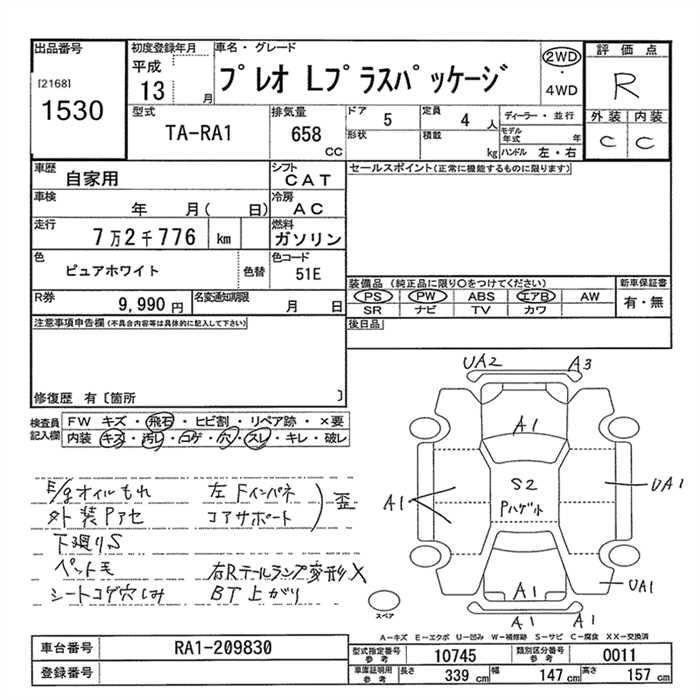 出品番号
[2168]
1530
初度登録年月
平成
13 月
車名・グレード
プレオ Lプラスパッケージ
2WD
・
4WD
評価点
R
外装 内装
C C
型式
TA-RA1
排気量
658
cc
ドア 5
定員 4 人
形状
積載 kg
ディーラー・並行
モデル年式 年
ハンドル 左・右
車歴
自家用
シフト
CAT
車検
年 月( 日)
冷房
AC
走行
7万2千776 km
燃料
ガソリン
色
ピュアホワイト
色替
色コード
51E
R券
9,990 円
名変通知期限
月 日
セールスポイント(正常に機能するものに限ります)
装備品 (純正品に限り○をつけてください)
PS PW ABS エアB AW
SR ナビ TV カワ
新車保証書
有・無
後日品
注意事項申告欄(不具合内容等は具体的に記入して下さい)
修復歴 有〔箇所 〕
検査員
記入欄
FW キズ・飛石・ヒビ割・リペア跡・×要
内装 キズ・汚レ・コゲ・穴・スレ・キレ・破レ
E/gオイルもれ
外装Pアセ
下廻りS
ペット毛
シートコゲ穴しみ
左Fインパネ
コアサポート
歪
右Rテールランプ変形X
BT上がり
UA2 A3
A1
A1
S2
Pハゲ
UA1
UA1
A1
A1 A1
スペア
A-キズ E-エクボ U-凹み W-補修跡 S-サビ C-腐食 XX-交換済
車台番号
RA1-209830
登録番号
型式指定番号
参考
10745
類別区分番号
参考
0011
車庫証明用
参考
長さ 339 cm
幅 147 cm
高さ 157 cm